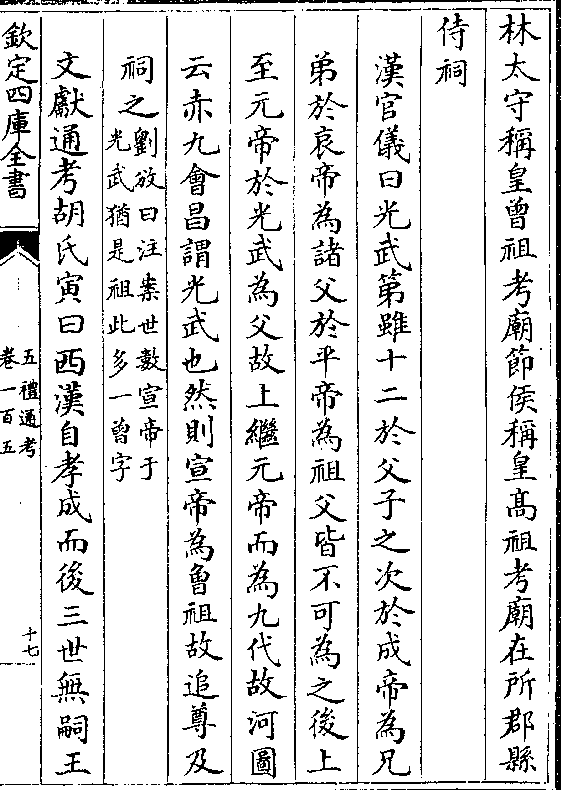 林太守稱皇曾祖考廟節侯稱皇高祖考廟在所郡縣
侍祠
漢官儀曰光武第雖十二於父子之次於成帝為兄
弟於哀帝為諸父於平帝為祖父皆不可為之後上
至元帝於光武為父故上繼元帝而為九代故河圖
云赤九會昌謂光武也然則宣帝為曾祖故追尊及
祠之劉攽曰注案世數宣帝于
光武猶是祖此多一曾字
文獻通考胡氏寅曰西漢自孝成而後三世無嗣王
欽定四庫全書
五禮通考
卷一百五
十七